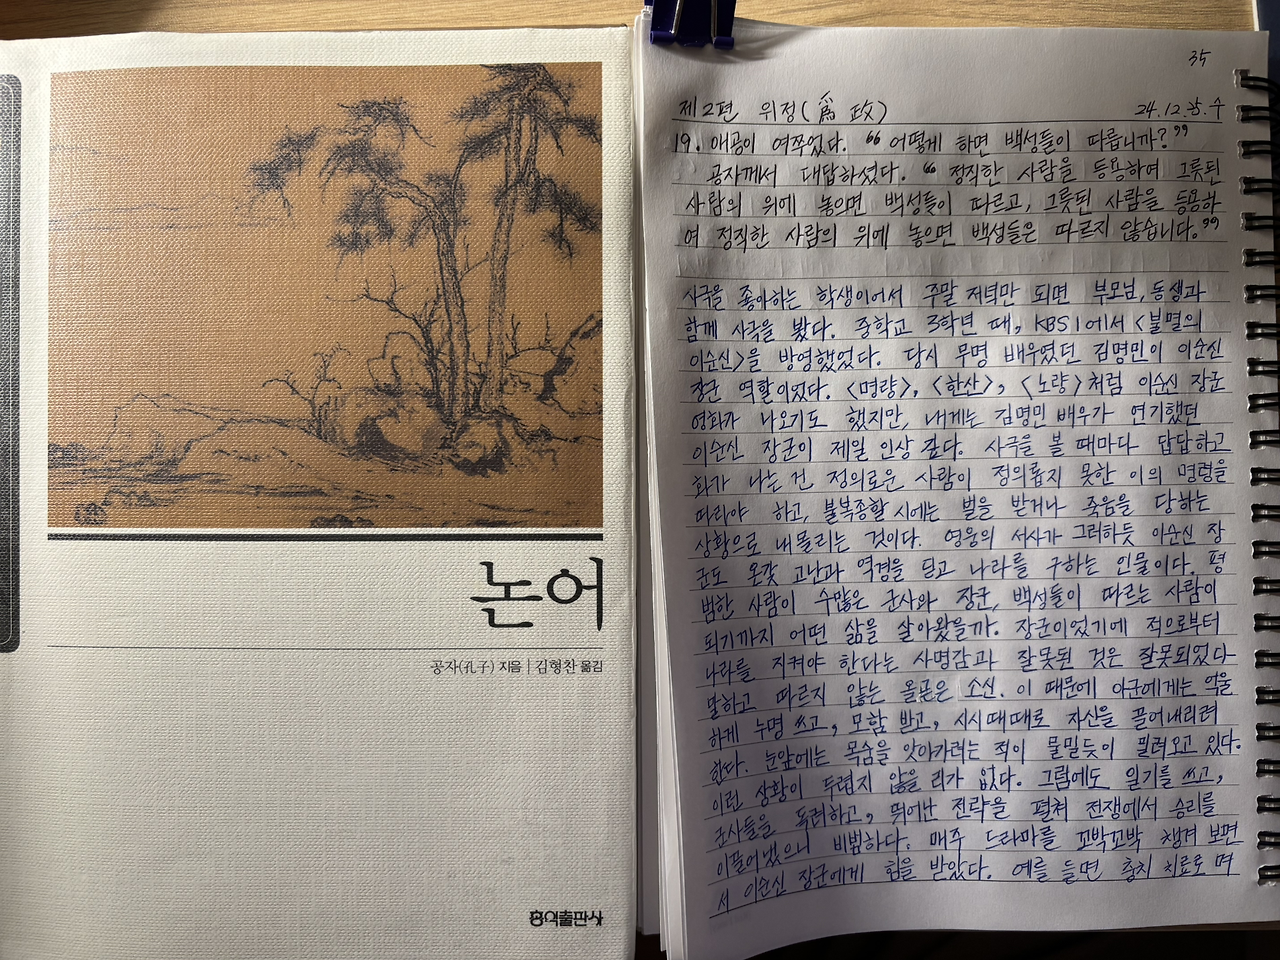 논어
공자(孔子) 지음 | 김형찬 옮김
홍익출판사
35
제2편 위정(爲政) 24.12.25.수
19. 애공이 여쭈었다. “어떻게 하면 백성들이 따릅니까?”
공자께서 대답하셨다. “정직한 사람을 등용하여 그릇된
사람의 위에 놓으면 백성들이 따르고, 그릇된 사람을 등용하
여 정직한 사람의 위에 놓으면 백성들은 따르지 않습니다.”
사극을 좋아하는 학생이어서 주말 저녁만 되면 부모님, 동생과
함께 사극을 봤다. 중학교 3학년 때, KBS1에서 <불멸의
이순신>을 방영했었다. 당시 무명 배우였던 김명민이 이순신
장군 역할이었다. <명량>, <한산>, <노량>처럼 이순신 장군
영화가 나오기도 했지만, 내게는 김명민 배우가 연기했던
이순신 장군이 제일 인상 깊다. 사극을 볼 때마다 답답하고
화가 나는 건 정의로운 사람이 정의롭지 못한 이의 명령을
따라야 하고, 불복종할 시에는 벌을 받거나 죽음을 당하는
상황으로 내몰리는 것이다. 영웅의 서사가 그러하듯 이순신 장
군도 온갖 고난과 역경을 딛고 나라를 구하는 인물이다. 평
범한 사람이 수많은 군사와 장군, 백성들이 따르는 사람이
되기까지 어떤 삶을 살아왔을까. 장군이었기에 적으로부터
나라를 지켜야 한다는 사명감과 잘못된 것은 잘못되었다
말하고 따르지 않는 올곧은 소신. 이 때문에 아군에게는 억울
하게 누명 쓰고, 모함 받고, 시시때때로 자신을 끌어내리려
한다. 눈앞에는 목숨을 앗아가려는 적이 물밀듯이 밀려오고 있다.
이런 상황이 두렵지 않을 리가 없다. 그럼에도 일기를 쓰고,
군사들을 독려하고, 뛰어난 전략을 펼쳐 전쟁에서 승리를
이끌어냈으니 비범하다. 매주 드라마를 꼬박꼬박 챙겨 보면
서 이순신 장군에게 힘을 받았다. 예를 들면 충치 치료로 며